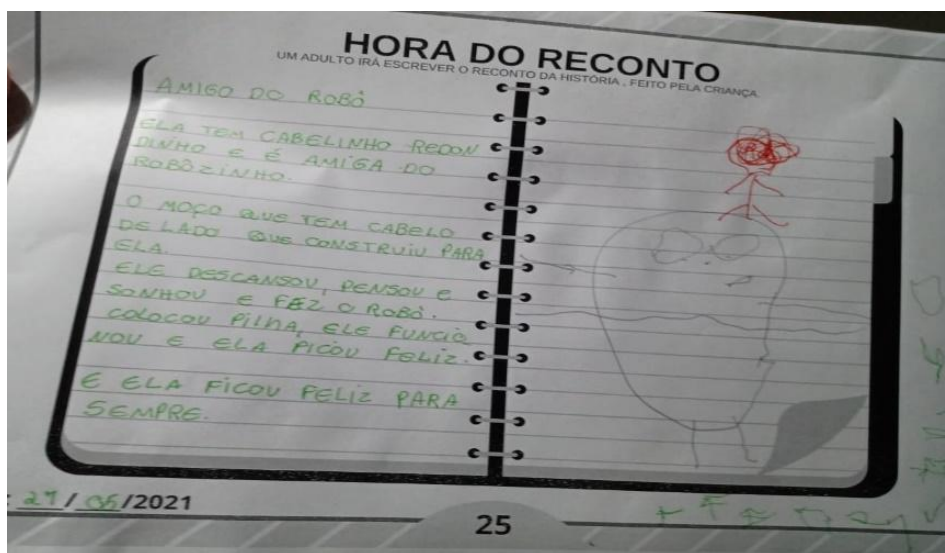 HORA DO RECONTO
UM ADULTO IRÁ ESCREVER O RECONTO DA HISTÓRIA , FEITO PELA CRIANÇA.
AMIGO DO ROBÔ
ELA TEM CABELINHO REDON
DINHO E É AMIGA DO
ROBÔZINHO.
O MOÇO QUE TEM CABELO
DE LADO QUE CONSTRUIU PARA
ELA.
ELE DESCANSOU, PENSOU E
SONHOU E FEZ O ROBÔ.
COLOCOU PILHA, ELE FUNCIO
NOU E ELA FICOU FELIZ.
E ELA FICOU FELIZ PARA
SEMPRE.
/2021
25